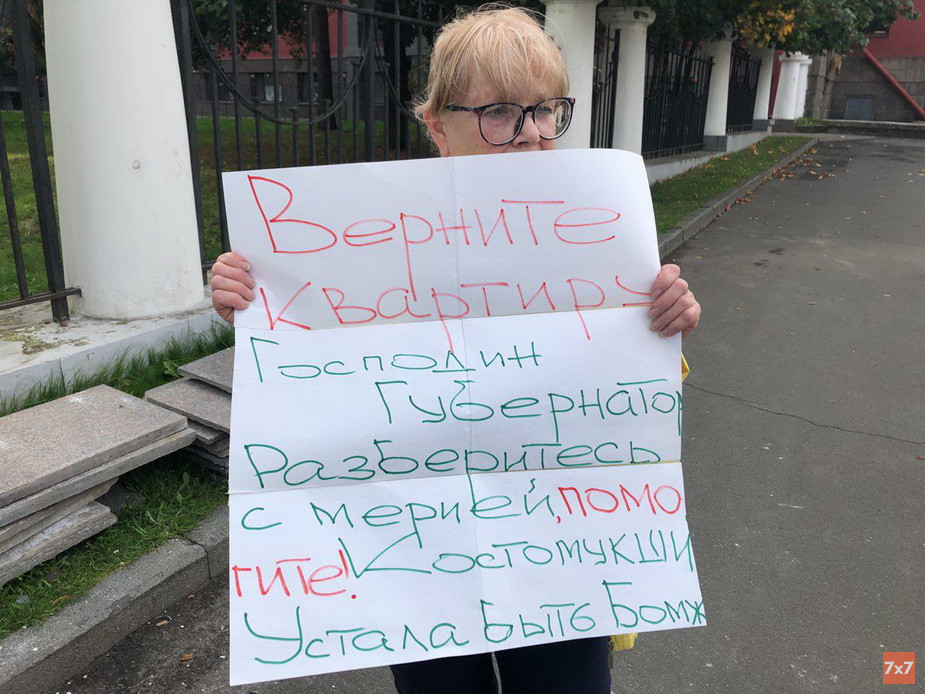 Верните
квартиру
Господин
Губернатор
Разберитесь
с мерией, помо
гите! Костомукши
Устала быть Бомж
7x7